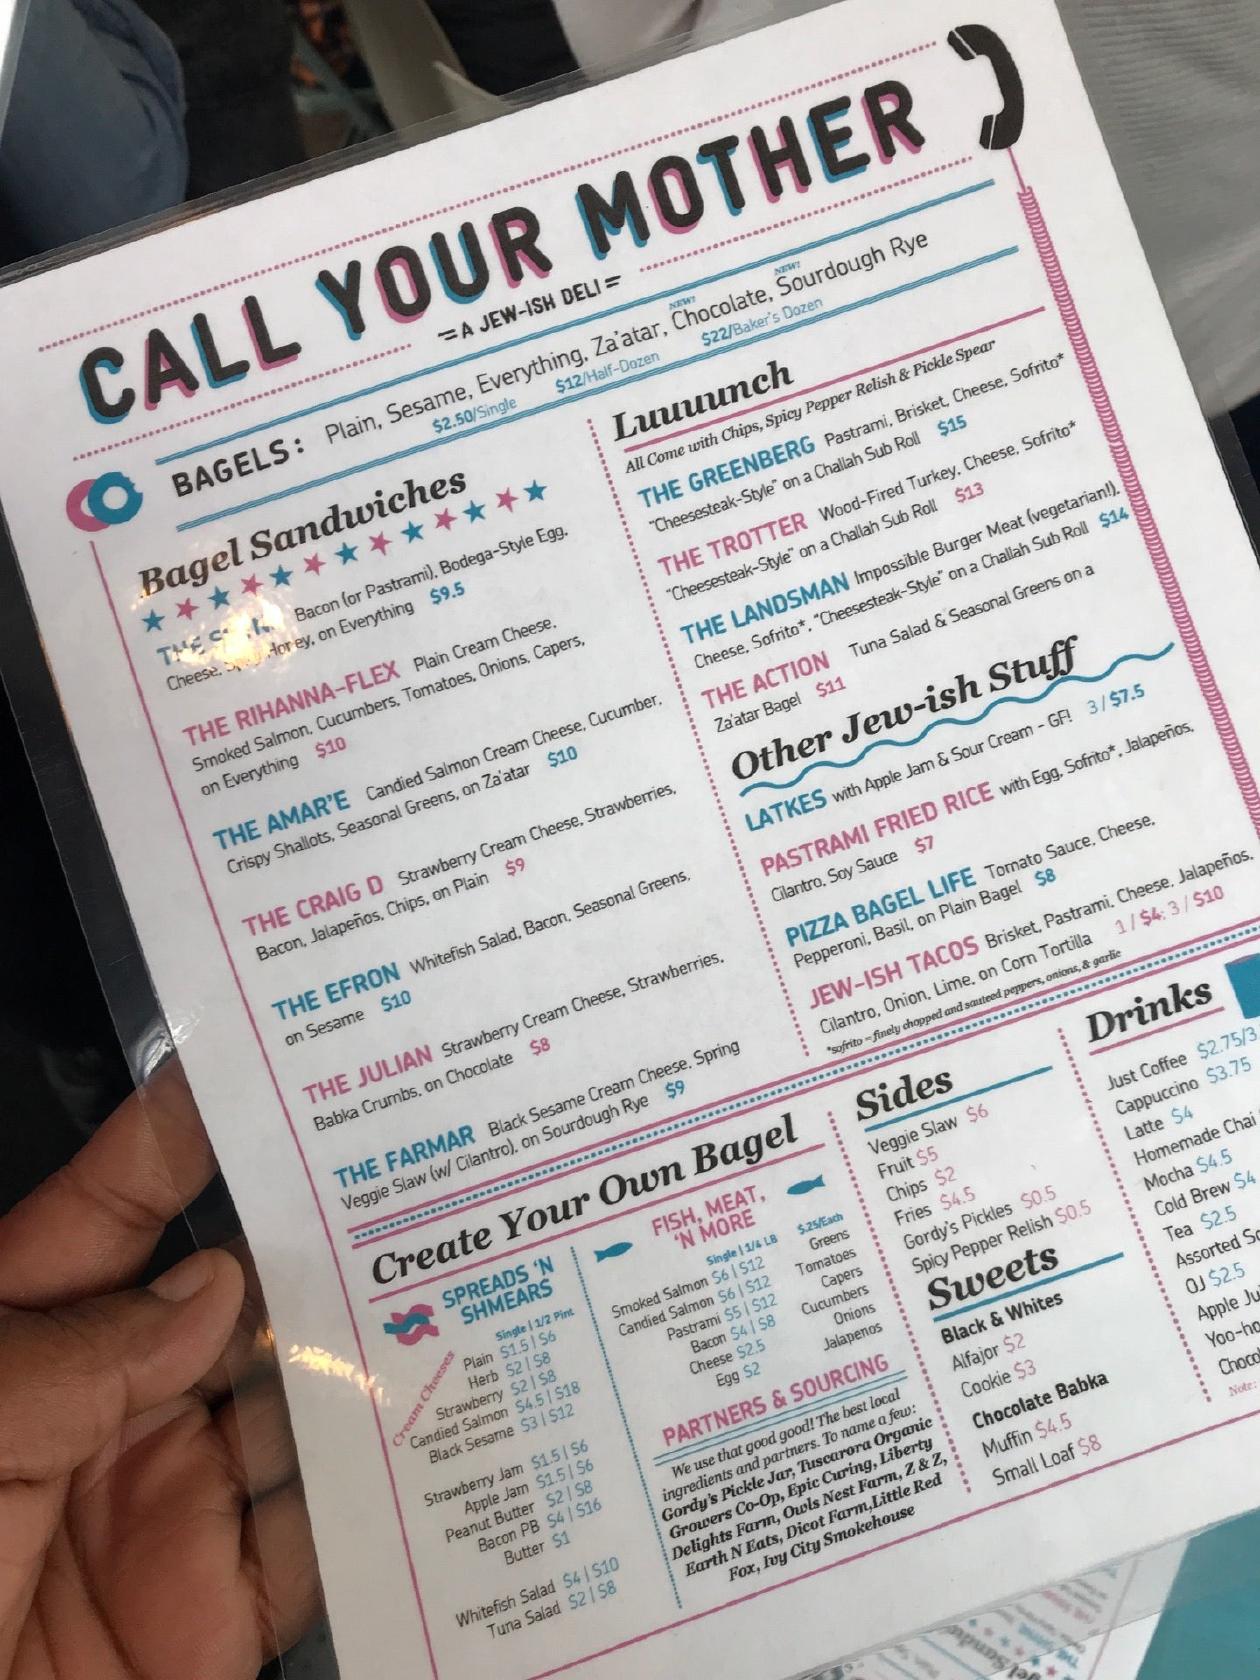 CALL YOUR MOTHER
A JEW-ISH DELI
BAGELS: Plain, Sesame, Everything, Za'atar, Chocolate, Sourdough Rye
NEW!
NEW!
$2.50/Single $12/Half-Dozen $22/Baker's Dozen
Bagel Sandwiches
THE Bacon (or Pastrami), Bodega-Style Egg,
Cheese, Spicy Honey, on Everything $9.5
THE RIHANNA-FLEX Plain Cream Cheese,
Smoked Salmon, Cucumbers, Tomatoes, Onions, Capers,
on Everything $10
THE AMAR'E Candied Salmon Cream Cheese, Cucumber,
Crispy Shallots, Seasonal Greens, on Za'atar $10
THE CRAIG D Strawberry Cream Cheese, Strawberries,
Bacon, Jalapeños, Chips, on Plain $9
THE EFRON Whitefish Salad, Bacon, Seasonal Greens,
on Sesame $10
THE JULIAN Strawberry Cream Cheese, Strawberries,
Babka Crumbs, on Chocolate $8
THE FARMAR Black Sesame Cream Cheese, Spring
Veggie Slaw (w/ Cilantro), on Sourdough Rye $9
Luuuunch
All Come with Chips, Spicy Pepper Relish & Pickle Spear
THE GREENBERG Pastrami, Brisket, Cheese, Sofrito*
"Cheesesteak-Style" on a Challah Sub Roll $15
THE TROTTER Wood-Fired Turkey, Cheese, Sofrito*
"Cheesesteak-Style" on a Challah Sub Roll $13
THE LANDSMAN Impossible Burger Meat (vegetarian!),
Cheese, Sofrito*, "Cheesesteak-Style" on a Challah Sub Roll $14
THE ACTION Tuna Salad & Seasonal Greens on a
Za'atar Bagel $11
Other Jew-ish Stuff
LATKES with Apple Jam & Sour Cream - GF! 3 / $7.5
PASTRAMI FRIED RICE with Egg, Sofrito*, Jalapeños,
Cilantro, Soy Sauce $7
PIZZA BAGEL LIFE Tomato Sauce, Cheese,
Pepperoni, Basil, on Plain Bagel $8
JEW-ISH TACOS Brisket, Pastrami, Cheese, Jalapeños,
Cilantro, Onion, Lime, on Corn Tortilla 1 / $4; 3 / $10
*sofrito = finely chopped and sauteed peppers, onions, & garlic
Create Your Own Bagel
SPREADS 'N
SHMEARS
Single | 1/2 Pint
Cream Cheeses
Plain $1.5 | $6
Herb $2 | $8
Strawberry $2 | $8
Candied Salmon $4.5 | $18
Black Sesame $3 | $12
Strawberry Jam $1.5 | $6
Apple Jam $1.5 | $6
Peanut Butter $2 | $8
Bacon PB $4 | $16
Butter $1
Whitefish Salad $4 | $10
Tuna Salad $2 | $8
FISH, MEAT,
'N MORE
Single | 1/4 LB
Smoked Salmon $6 | $12
Candied Salmon $6 | $12
Pastrami $5 | $12
Bacon $4 | $8
Cheese $2.5
Egg $2
$.25/Each
Greens
Tomatoes
Capers
Cucumbers
Onions
Jalapenos
PARTNERS & SOURCING
We use that good good! The best local
ingredients and partners. To name a few:
Gordy's Pickle Jar, Tuscarora Organic
Growers Co-Op, Epic Curing, Liberty
Delights Farm, Owls Nest Farm, Z & Z,
Earth N Eats, Dicot Farm,Little Red
Fox, Ivy City Smokehouse
Sides
Veggie Slaw $6
Fruit $5
Chips $2
Fries $4.5
Gordy's Pickles $0.5
Spicy Pepper Relish $0.5
Sweets
Black & Whites
Alfajor $2
Cookie $3
Chocolate Babka
Muffin $4.5
Small Loaf $8
Drinks
Just Coffee $2.75/3
Cappuccino $3.75
Latte $4
Homemade Chai
Mocha $4.5
Cold Brew $4
Tea $2.5
Assorted So
OJ $2.5
Apple Ju
Yoo-ho
Chocol
Note: